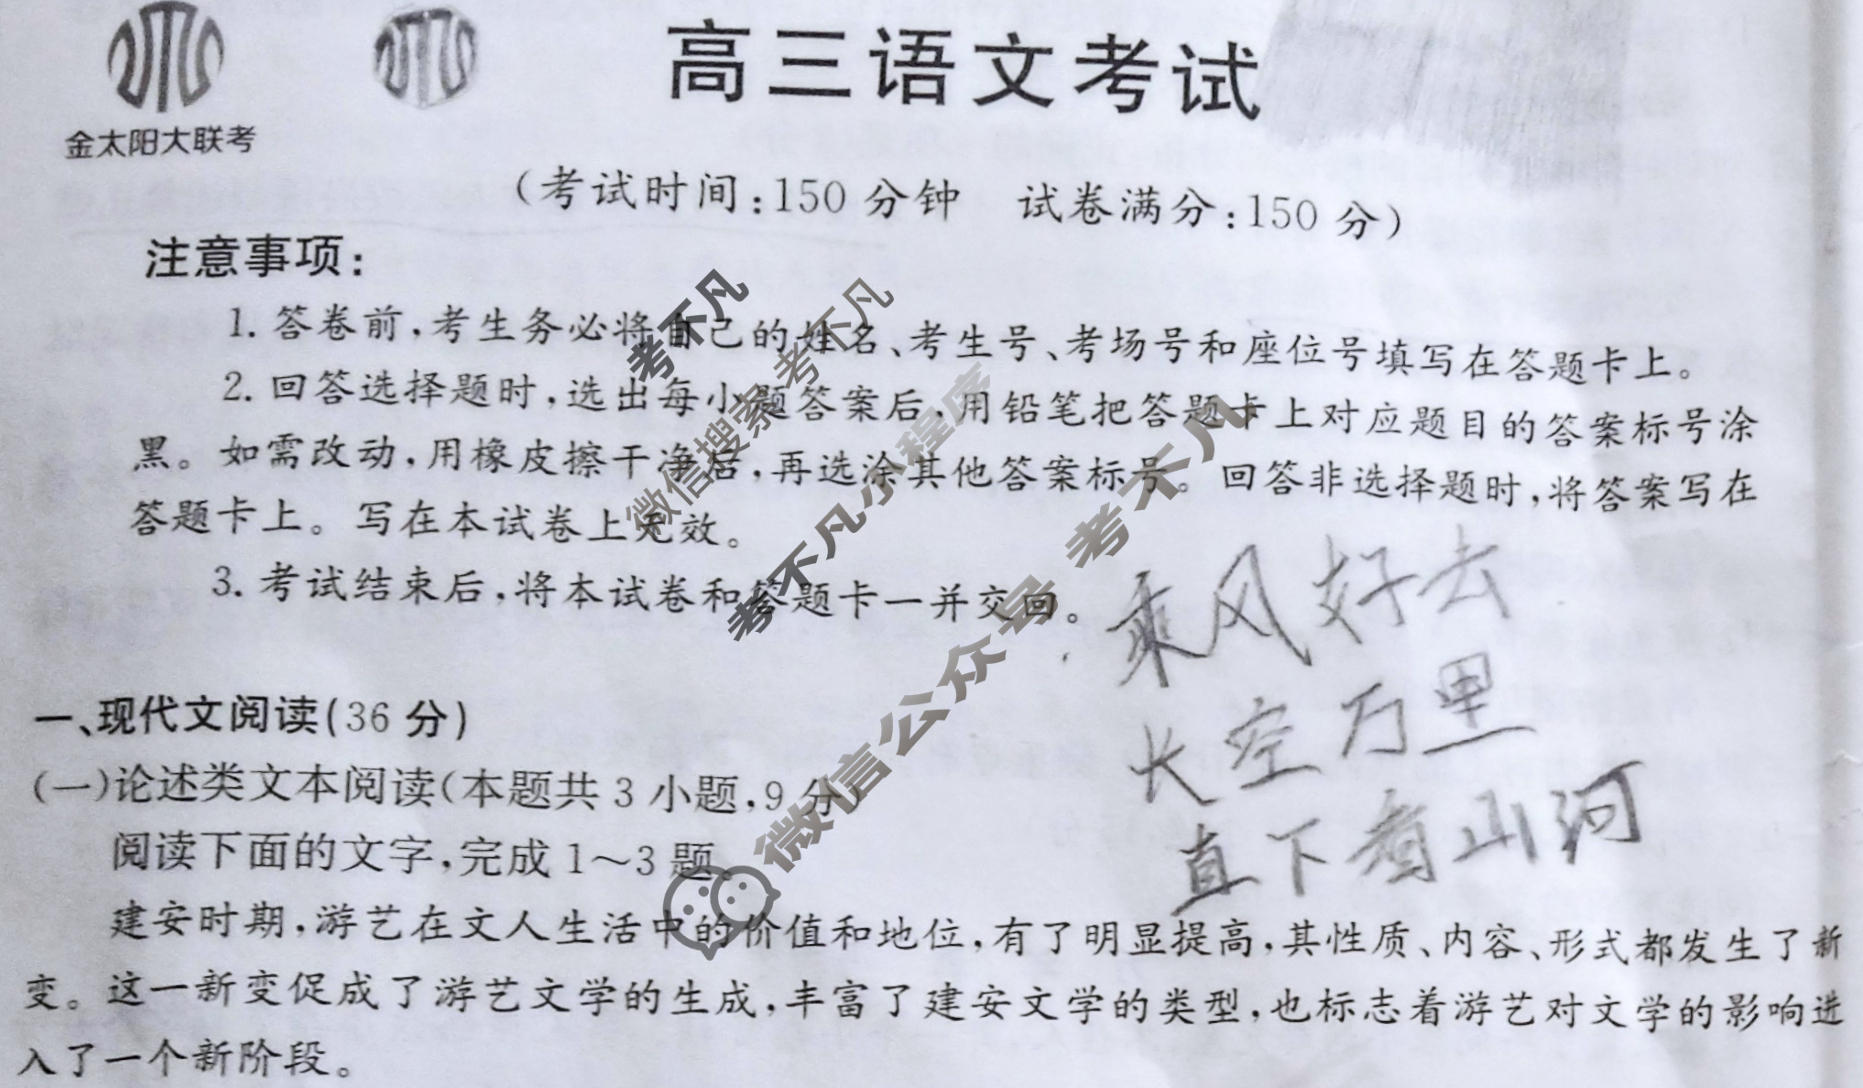 金太阳大联考
高三语文考试
(考试时间:150分钟 试卷满分:150分)
注意事项:
1. 答卷前,考生务必将自己的姓名、考生号、考场号和座位号填写在答题卡上。
2. 回答选择题时,选出每小题答案后,用铅笔把答题卡上对应题目的答案标号涂
黑。如需改动,用橡皮擦干净后,再选涂其他答案标号。回答非选择题时,将答案写在
答题卡上。写在本试卷上无效。
3. 考试结束后,将本试卷和答题卡一并交回。
乘风好去
长空万里
直下看山河
一、现代文阅读(36分)
(一)论述类文本阅读(本题共3小题,9分)
阅读下面的文字,完成1~3题。
建安时期,游艺在文人生活中的价值和地位,有了明显提高,其性质、内容、形式都发生了新
变。这一新变促成了游艺文学的生成,丰富了建安文学的类型,也标志着游艺对文学的影响进
入了一个新阶段。
考不凡
微信搜索 考不凡
考不凡小程序
微信公众号 考不凡